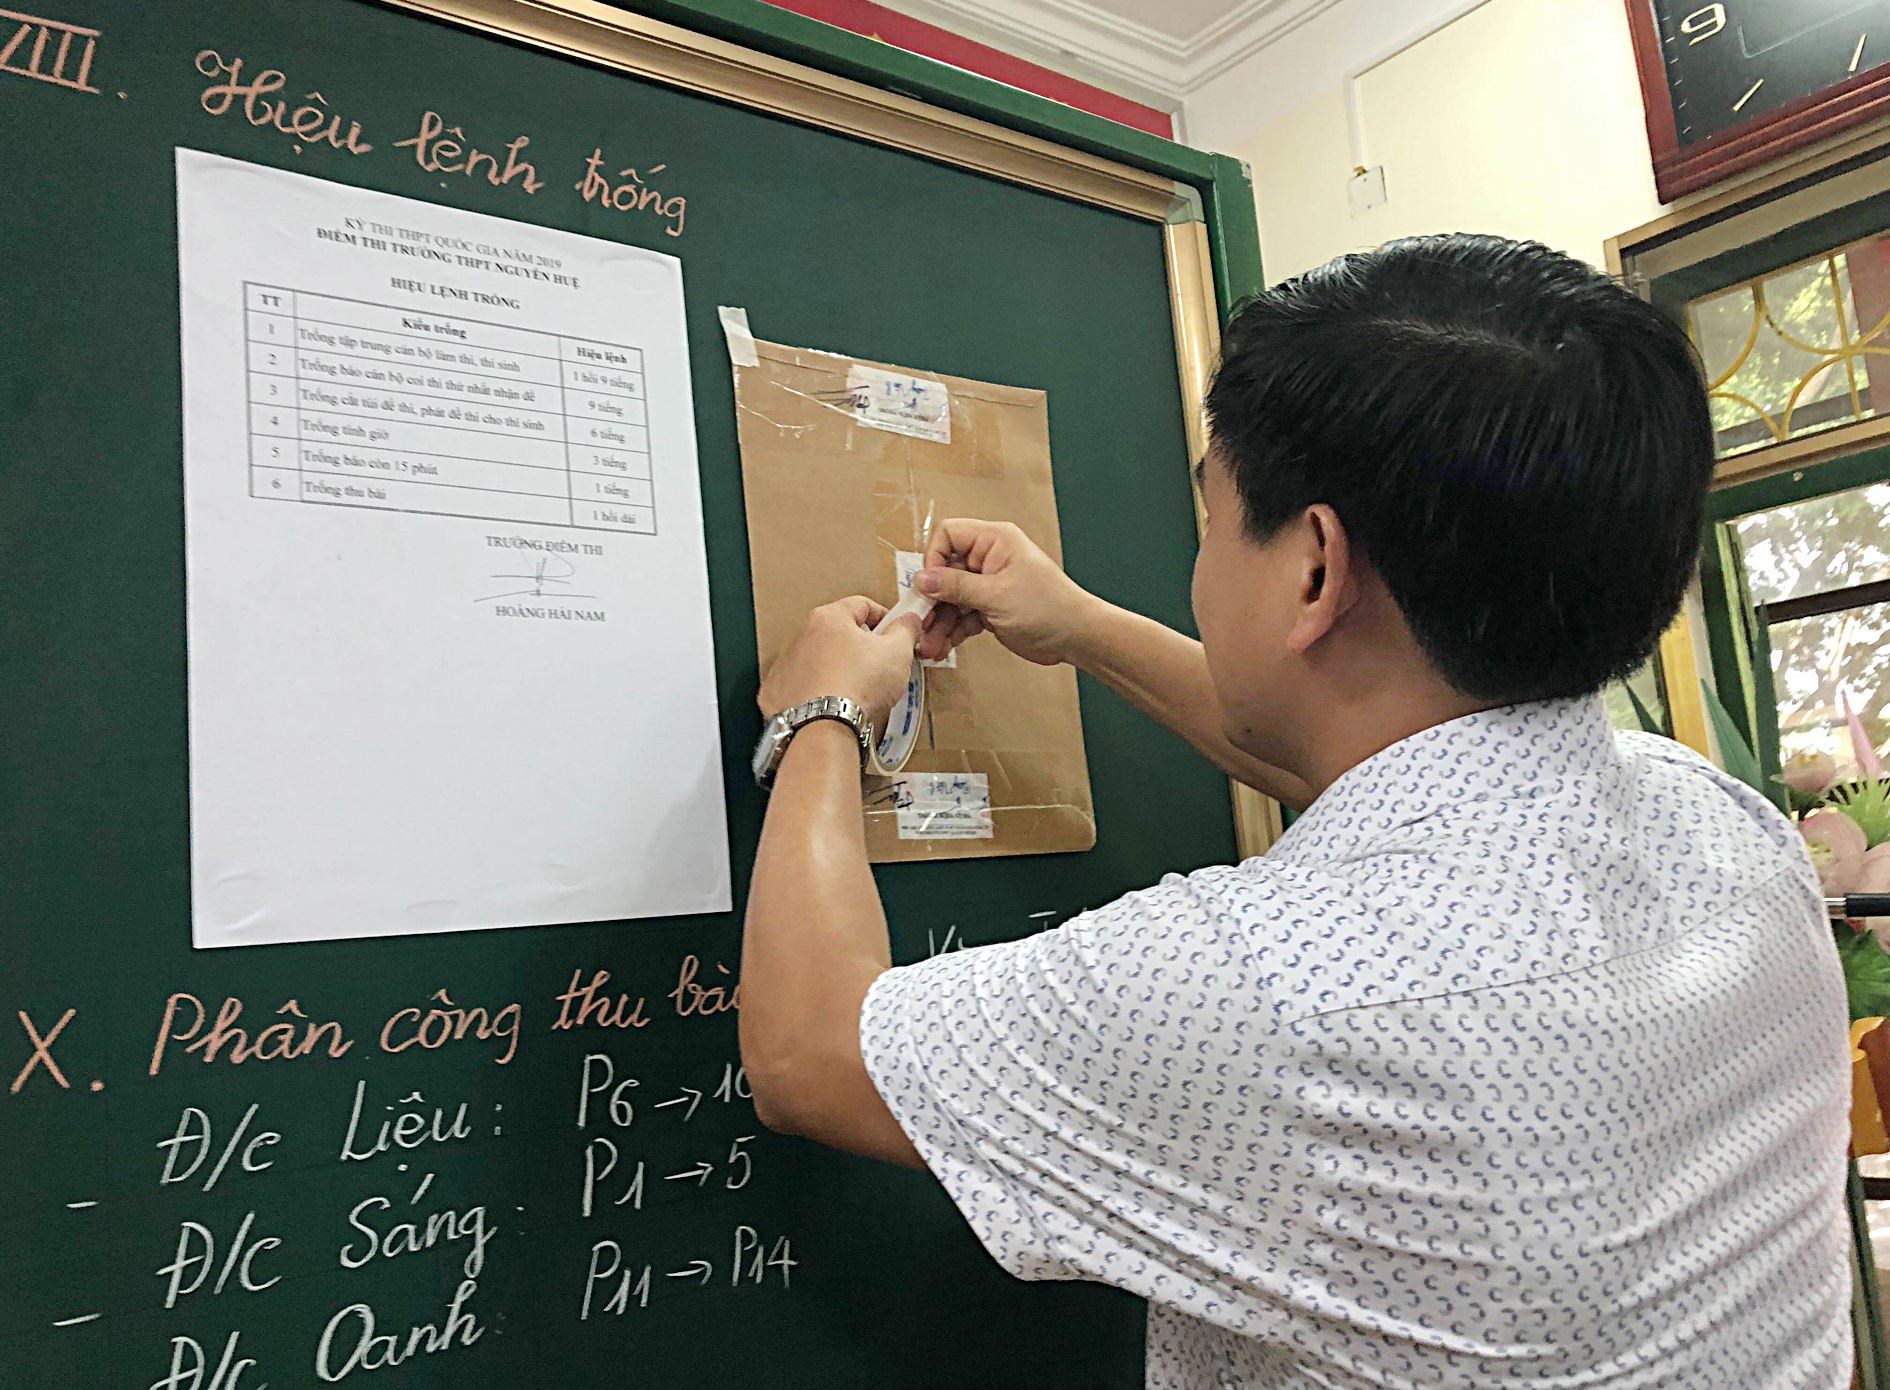 VIII. Hiệu lệnh trống
KỲ THI THPT QUỐC GIA NĂM 2019
ĐIỂM THI TRƯỜNG THPT NGUYỄN HUỆ
HIỆU LỆNH TRỐNG
TT Kiểu trống Hiệu lệnh
1 Trống tập trung cán bộ làm thi, thí sinh 1 hồi 9 tiếng
2 Trống báo cán bộ coi thi thứ nhất nhận đề 9 tiếng
3 Trống cắt túi đề thi, phát đề thi cho thí sinh 6 tiếng
4 Trống tính giờ 3 tiếng
5 Trống báo còn 15 phút 1 tiếng
6 Trống thu bài 1 hồi dài
TRƯỞNG ĐIỂM THI
HOÀNG HẢI NAM
X. Phân công thu bài
Đ/c Liệu: P6 → 10
- Đ/c Sáng: P1 → 5
- Đ/c Oanh: P11 → P14
9